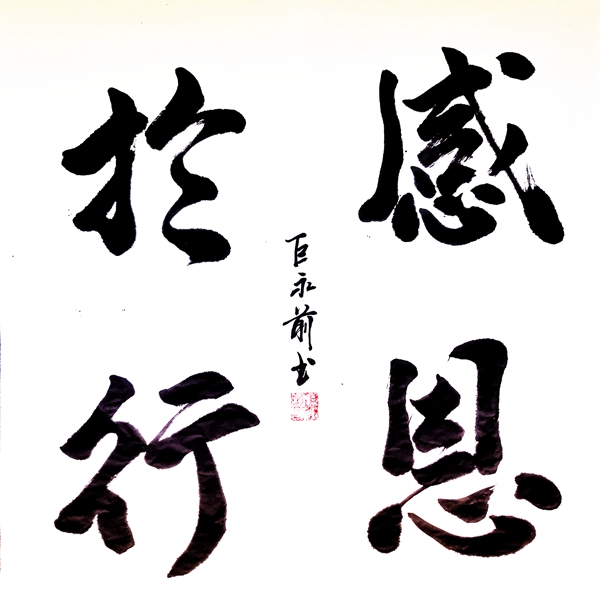 感恩
於行
巨永前书